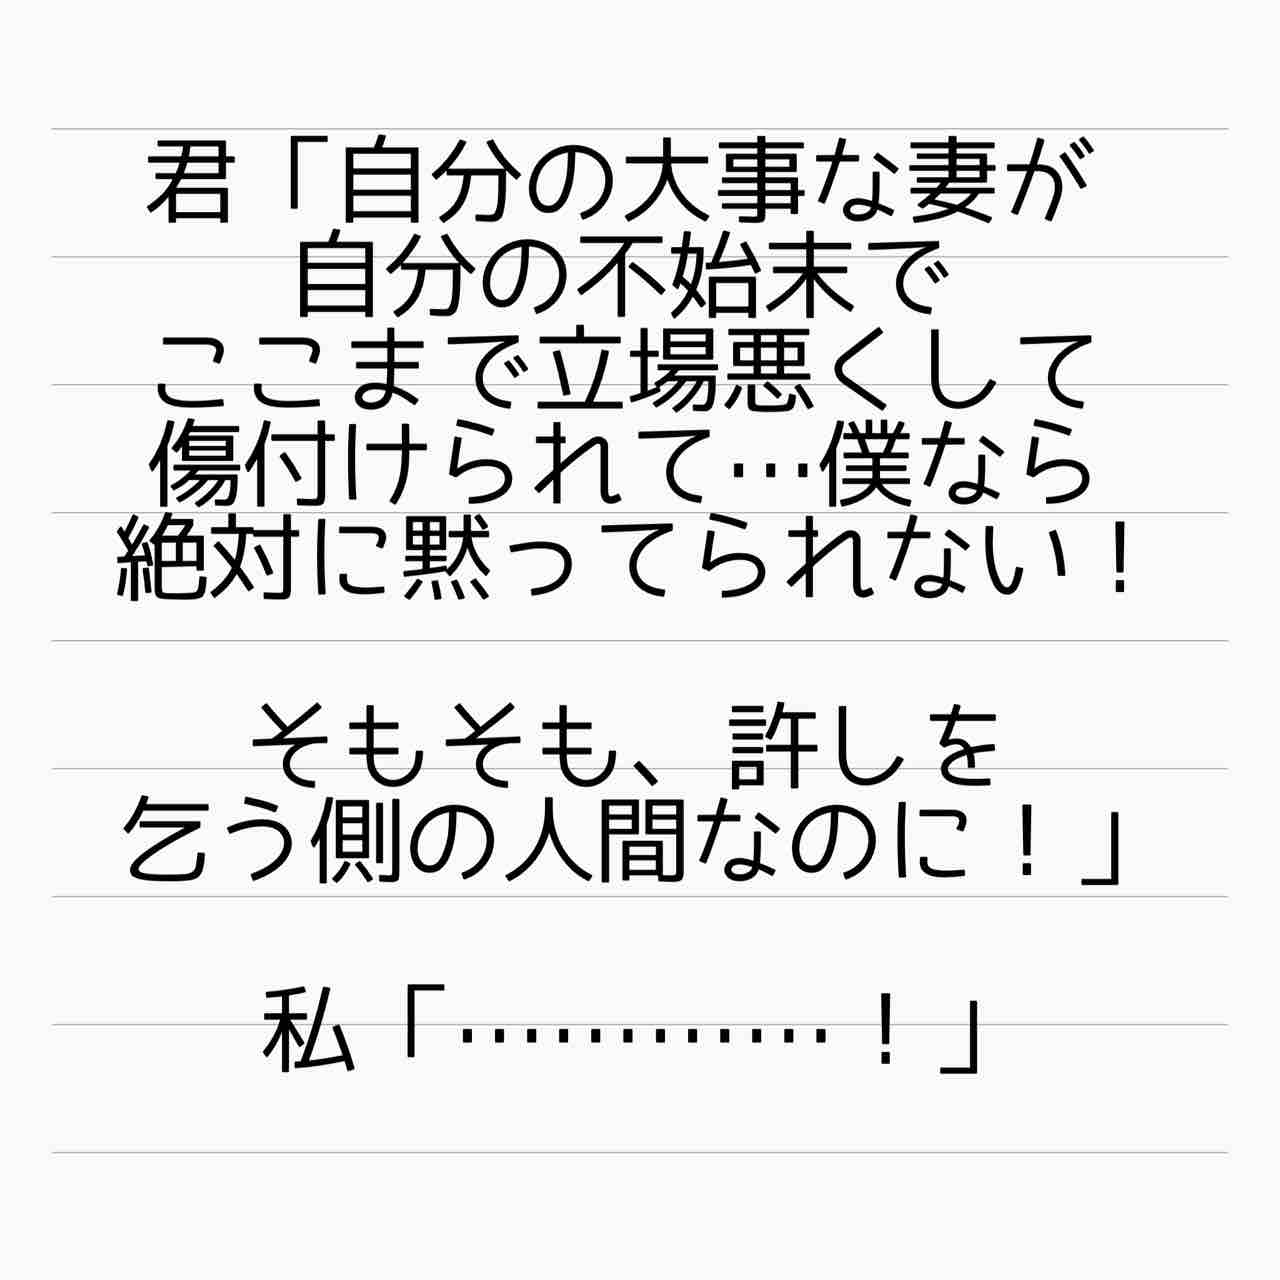 君「自分の大事な妻が
自分の不始末で
ここまで立場悪くして
傷付けられて…僕なら
絶対に黙ってられない！
そもそも、許しを
乞う側の人間なのに！」
私「…………！」